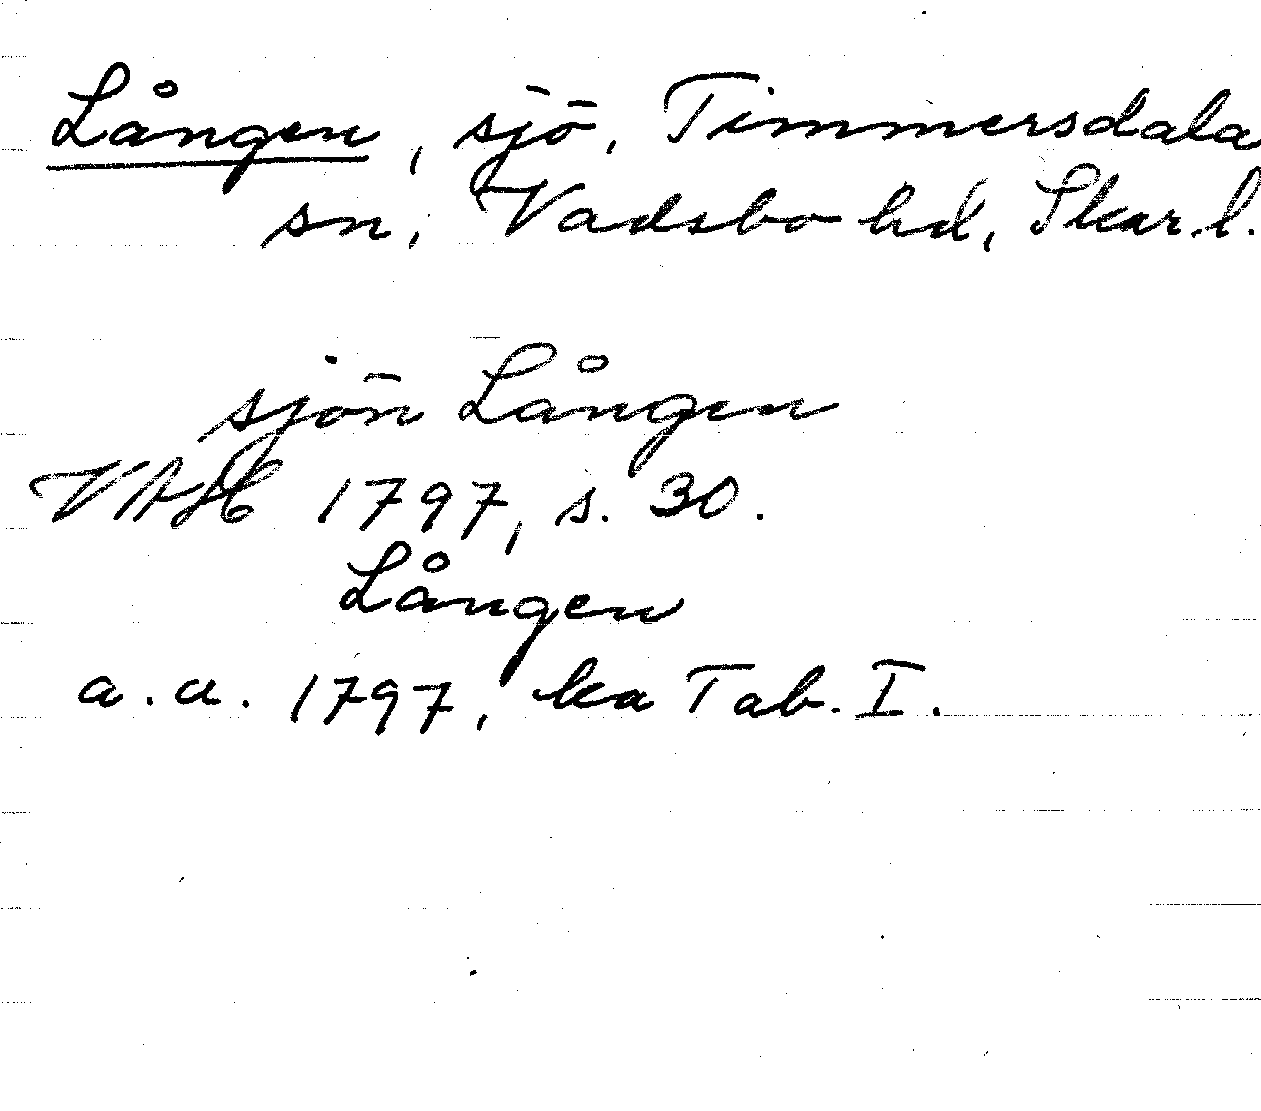 Lången, sjö, Timmersdala
sn, Vadsbo hd, Skar. l.
sjön Lången
VAH 1797, s. 30.
Lången
a. a. 1797, ka Tab. I.